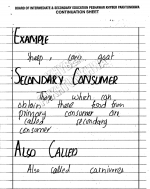 BOARD OF INTERMEDIATE & SECONDARY EDUCATION PESHAWAR KHYBER PAKHTUNKHWA
CONTINUATION SHEET
EXAMPLE
Sheep, cow, goat
SECONDARY CONSUMER
Those which can
obtain there food from
primary consumer are
called secondary
consumer
ALSO CALLED
Also called carnivores